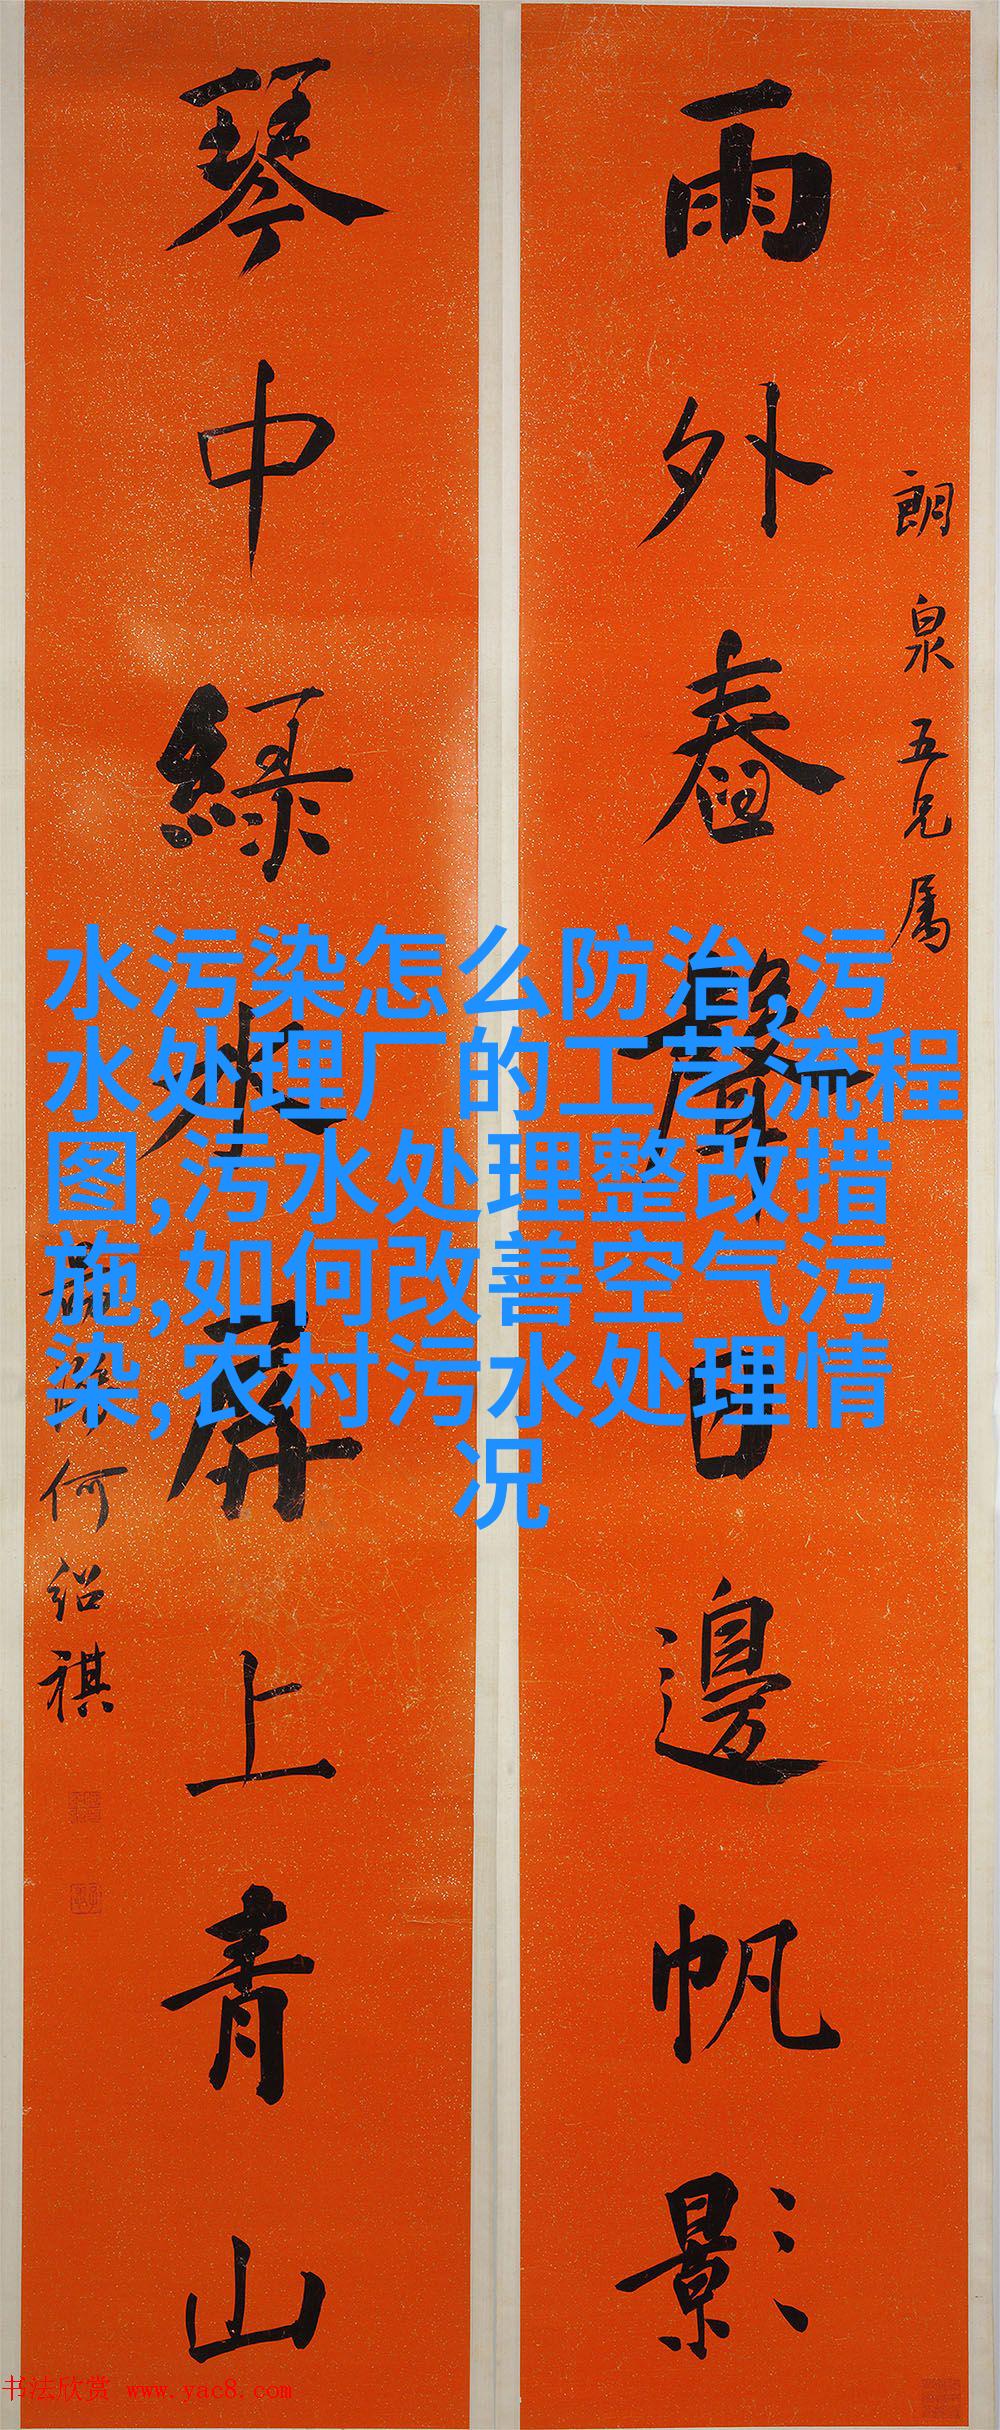 雨外舂聲日邊帆影
朗泉五兄属
琴中綠水屏上青山
何紹祺
水污染怎么防治,污
水处理厂的工艺流程
图,污水处理整改措
施,如何改善空气污
染,农村污水处理情
况
书法欣赏 www.yac8.com